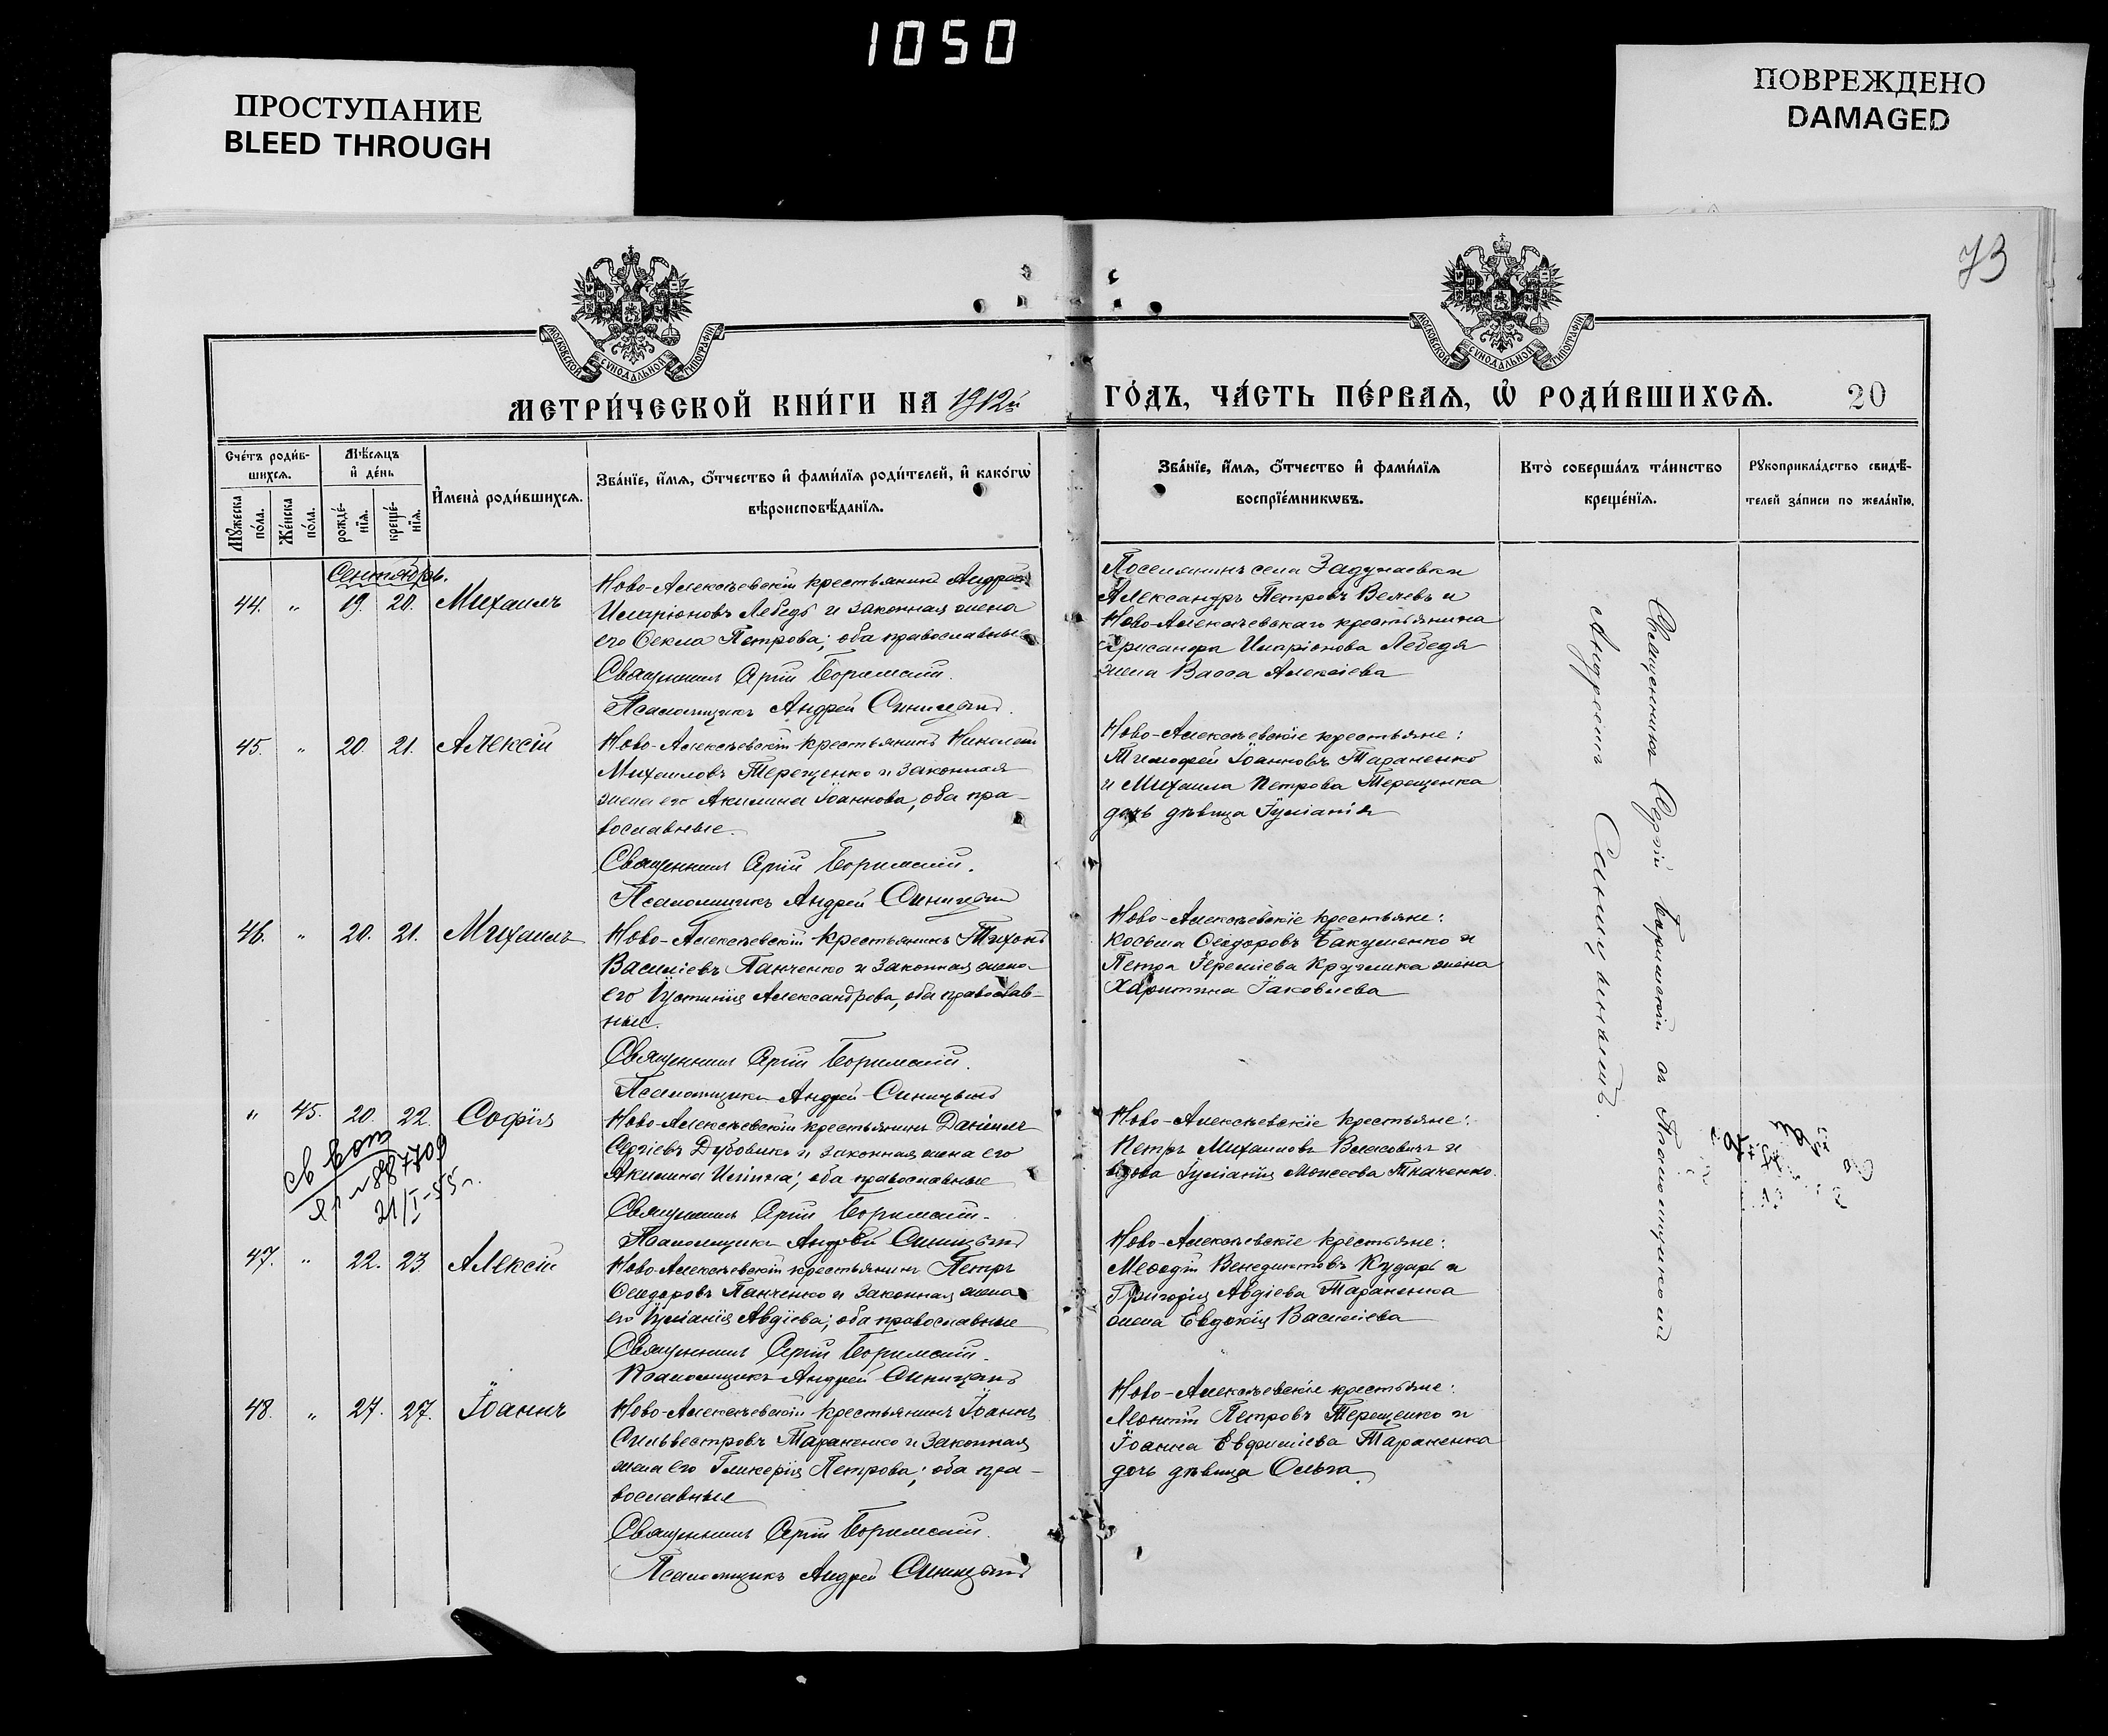 1050
ПРОСТУПАНИЕ
BLEED THROUGH
ПОВРЕЖДЕНО
DAMAGED
73
МОСКОВСКОЙ СѴНОДАЛЬНОЙ ТИПОГРАФІИ
МОСКОВСКОЙ СѴНОДАЛЬНОЙ ТИПОГРАФІИ
МЕТРИ́ЧЕСКОЙ КНИ́ГИ НА 1912й ГО́ДЪ, ЧА́СТЬ ПЕ́РВАѦ, Ѡ҆ РОДИ́ВШИХСѦ. 20
Сче́тъ роди́в-
шихсѧ.
Мꙋ́жеска по́ла.
Же́нска по́ла.
Мѣ́сѧцъ
и҆ де́нь
рожде́-
нїѧ.
креще́-
нїѧ.
И҆мена̀ роди́вшихсѧ.
Зва́нїе, и҆́мѧ, ѻ҆́тчество и҆ фами́лїѧ роди́телей, и҆ како́гѡ
вѣроисповѣ́данїѧ.
Зва́нїе, и҆́мѧ, ѻ҆́тчество и҆ фами́лїѧ
воспрїе́мникѡвъ.
Кто̀ соверша́лъ та́инство
креще́нїѧ.
Рꙋкоприкла́дство свидѣ́-
телей за́писи по жела́нїю.
Сентябрь.
44. " 19. 20. Михаилъ
Ново-Алексѣевскій крестьянинъ Андрей
Иларіоновъ Лебедь и законная жена
его Ѳекла Петрова; оба православные
Священникъ Сергій Боримскій.
Псаломщикъ Андрей Синицынъ.
Поселянинъ села Задунаевки
Александръ Петровъ Велевъ и
Ново-Алексѣевскаго крестьянина
Хрисанфа Иларіонова Лебедя
жена Васса Алексіева
45. " 20. 21. Алексій
Ново-Алексѣевскій крестьянинъ Николай
Михаиловъ Терещенко и законная
жена его Акилина Іоаннова, оба пра-
вославные.
Священникъ Сергій Боримскій.
Псаломщикъ Андрей Синицынъ
Ново-Алексѣевскіе крестьяне:
Тимофей Іоанновъ Тараненко
и Михаила Петрова Терещенка
дочь дѣвица Іуліанія
46. " 20. 21. Михаилъ
Ново-Алексѣевскій крестьянинъ Тихонъ
Василіевъ Панченко и законная жена
его Іустинія Александрова, оба православ-
ные.
Священникъ Сергій Боримскій.
Псаломщикъ Андрей Синицынъ
Ново-Алексѣевскіе крестьяне:
Косьма Ѳеодоровъ Бакуменко и
Петра Іереміева Кругляка жена
Харитина Іаковлева
" 45. 20. 22. Софія
Ново-Алексѣевскій крестьянинъ Даніилъ
Сергіевъ Дубовикъ и законная жена его
Акилина Иліина; оба православные
Священникъ Сергій Боримскій.
Псаломщикъ Андрей Синицынъ
Ново-Алексѣевскіе крестьяне:
Петръ Михаиловъ Власовичъ и
вдова Іуліанія Моисеева Ткаченко.
887709
21/I-55 г.
47. " 22. 23 Алексій
Ново-Алексѣевскій крестьянинъ Петръ
Ѳеодоровъ Панченко и законная жена
его Іуліанія Авдіева; оба православные
Священникъ Сергій Боримскій.
Псаломщикъ Андрей Синицынъ
Ново-Алексѣевскіе крестьяне:
Меѳодій Венедиктовъ Кударь и
Григорія Авдіева Тараненка
жена Евдокія Василіева
48. " 27. 27. Іоаннъ
Ново-Алексѣевскій крестьянинъ Іоаннъ
Сильвестровъ Тараненко и законная
жена его Гликерія Петрова; оба пра-
вославные
Священникъ Сергій Боримскій.
Псаломщикъ Андрей Синицынъ
Ново-Алексѣевскіе крестьяне:
Леонтій Петровъ Терещенко и
Іоанна Евфиміева Тараненка
дочь дѣвица Ольга.
Священникъ Сергій Боримскій съ Псаломщикомъ
Андреемъ Синицынымъ.